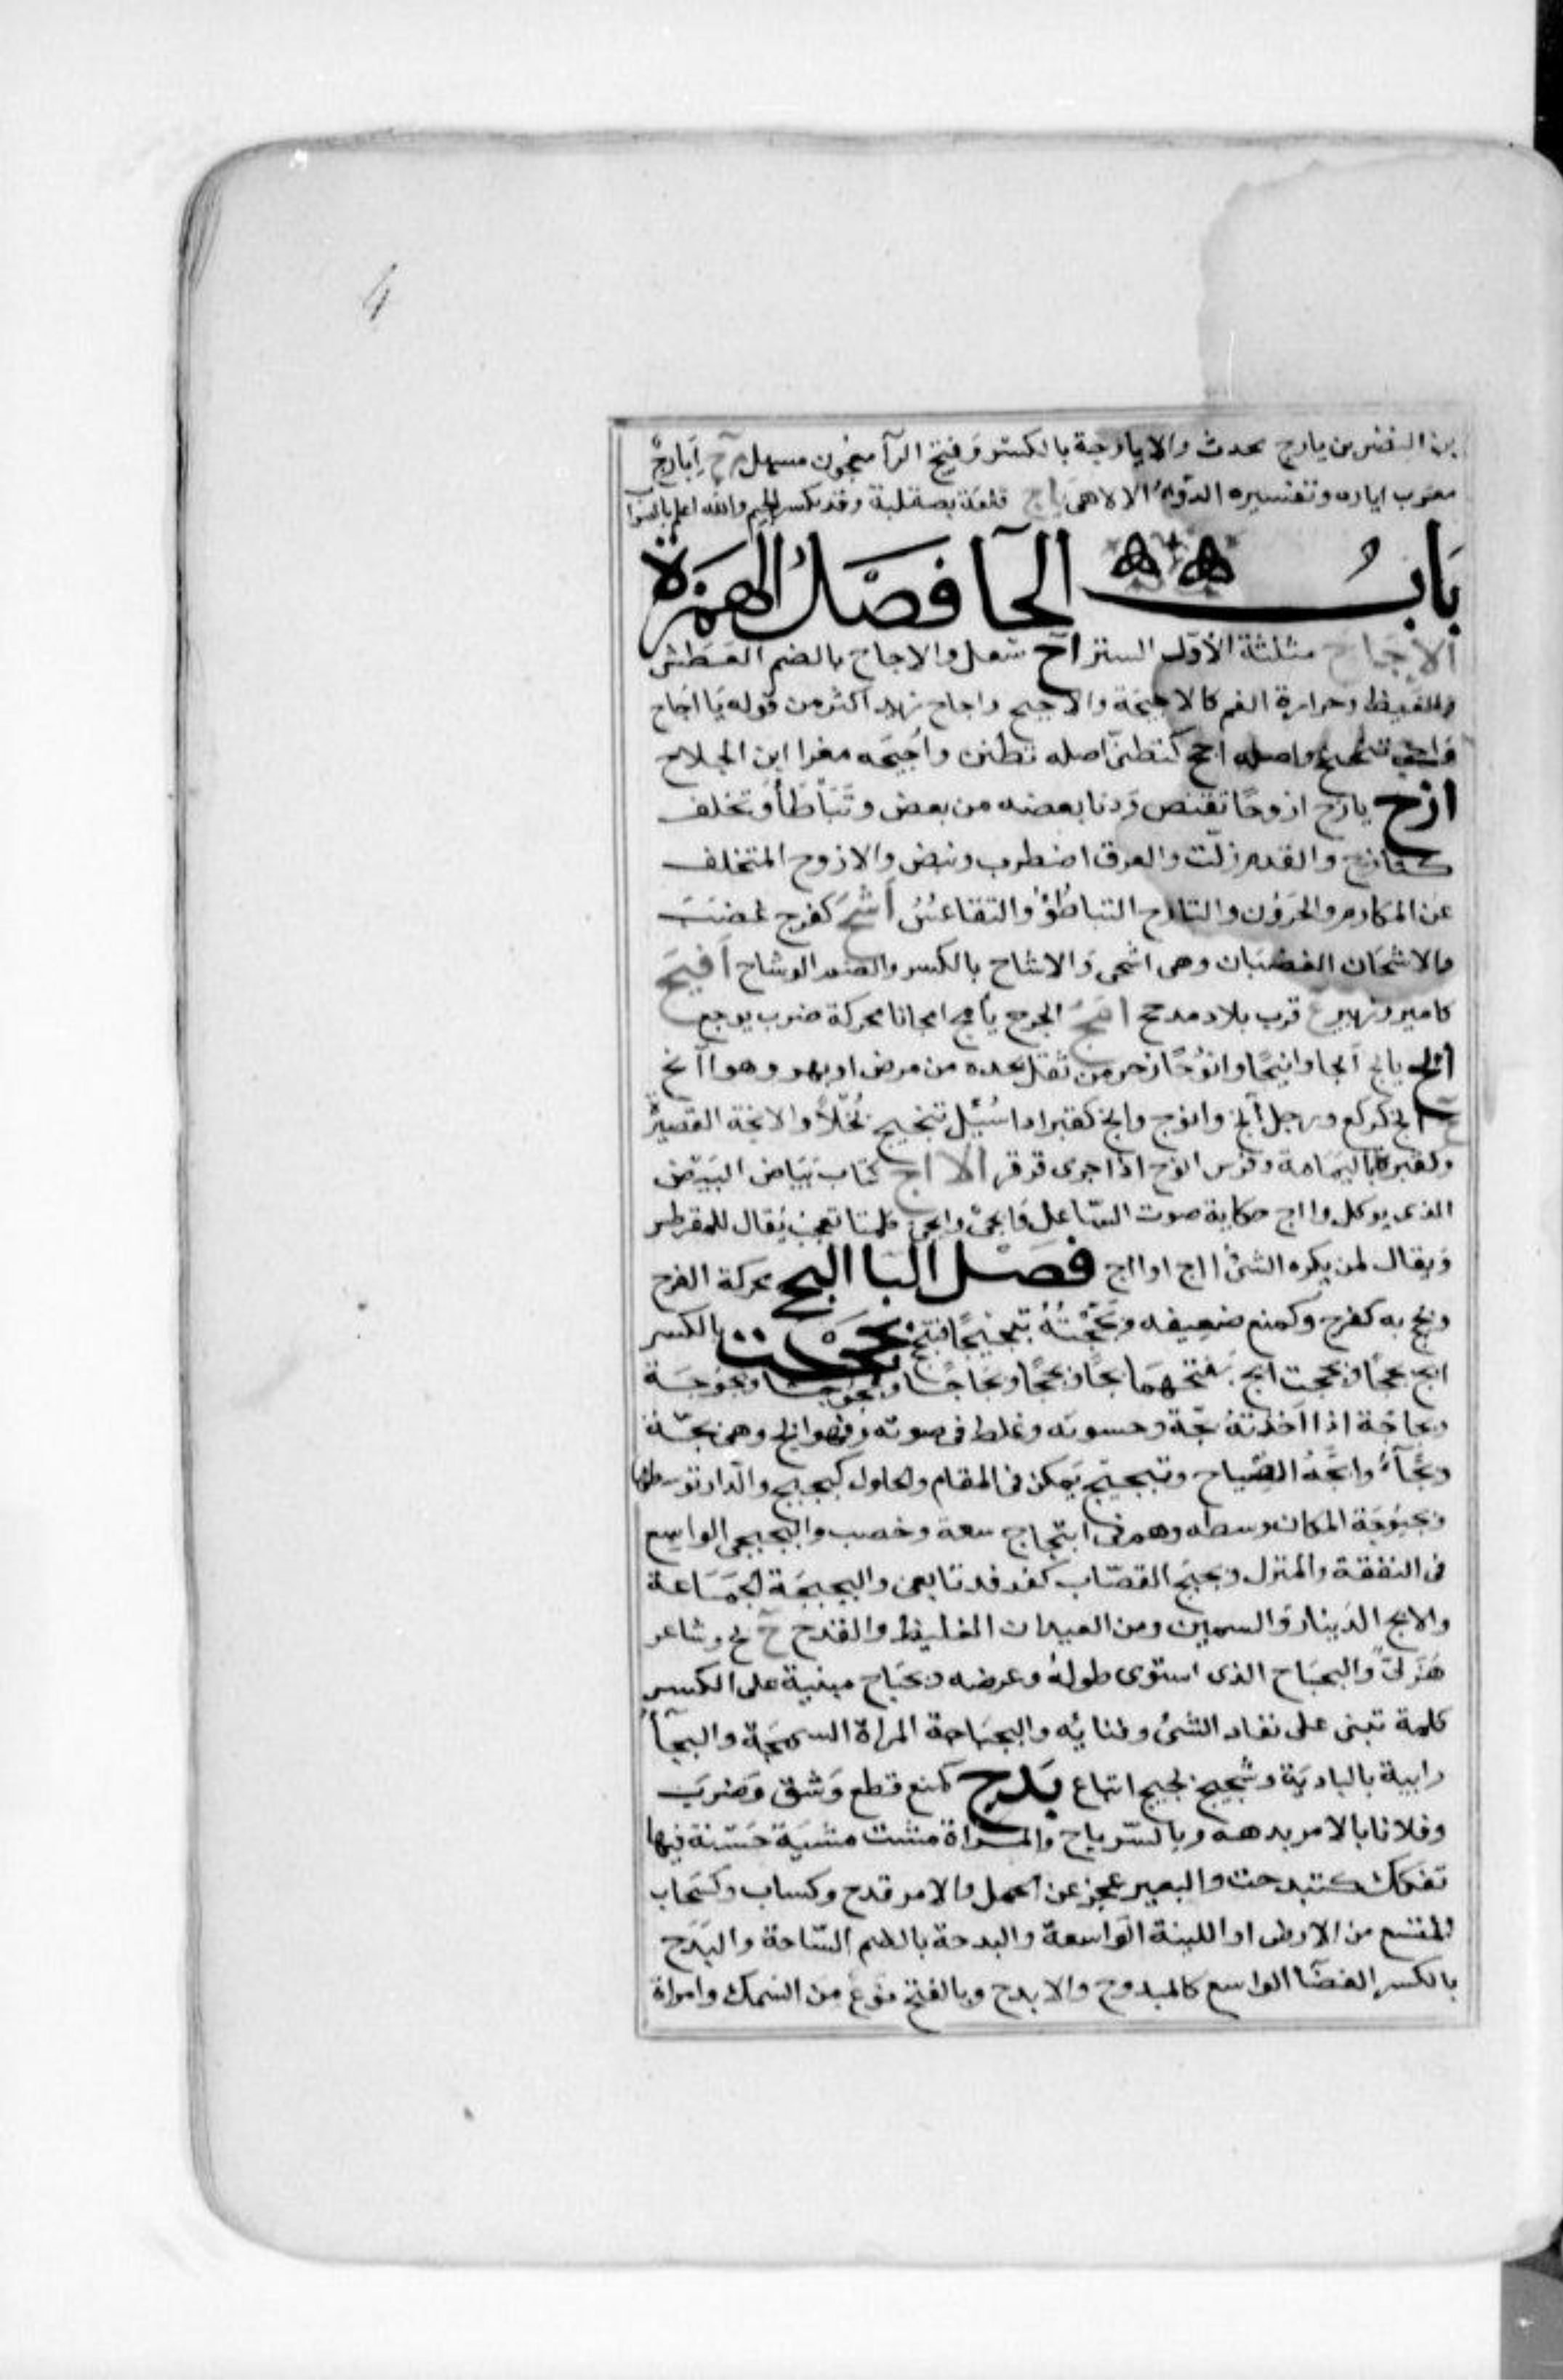 4
بن النضر بن يارج محدث والايارجة بالكسر وفتح الرآ معجون مسهل م ج ايارج
معرب اياره وتفسيره الدوآ الالاهى ياج قلعة بصقلية وقد يكسر الجيم والله اعلم بالصوا
باب الحآ فصل الهمزة
الاجاح مثلثة الاول الستر اح سعل والاحاح بالضم العطش
والغيظ وحرارة الغم كالاحيحة والاحيح واحاح زيد اكثر من قوله يا احاح
واصله احح كتظنى اصله تظنن واحيحه مغرا ابن الجلاح
ازح يازح ازوحا تقبض ودنا بعضه من بعض وتباطأ وتخلف
كتازح والقدم زلت والعرق اضطرب ونبض والازوح المتخلف
عن المكارم والحرون والتازح التباطؤ والتقاعس اشح كفرح غضب
والاشحان الغضبان وهى اشحى والاشاح بالكسر والضم الوشاح افيح
كامير وزبير ع قرب بلاد مدحج امح الجرح يأمح امحانا محركة ضرب بوجع
انح يانح انحا وانيحا وانوحا زحر من ثقل يجده من مرض او بهر وهو انح
ج انح كركع ورجل آنح وانوح وانح كقبر اذا سئل تنحنح بخلا والانحة القصيرة
وكقبرة باليمامة وفرس انوح اذا جرى فزفر الااح ككتاب بياض البيض
الذى يوكل وااح حكاية صوت الساعل وايحى وايحى كلمتا تعجب يقال للمقرطس
ويقال لمن يكره الشئ ااح اوااح فصل البا البجح محركة الفرح
وبجح به كفرح وكمنع ضعيفه وبجحته تبجيحا فتبجح بححت بالكسر
ابح بححا وبححت ابح بفتحهما بحا وبححا وبحاحا وبحوحا وبحوحة
وبحاحة اذا اخذته بحة وخشونه وغلظ فى صوته وهو ابح وهى بحة
وبحآء وابحه الصياح وتبحبح تمكن فى المقام والحلول كبحبح والدار توسطها
وبحبوحة المكان وسطه وهم فى ابتحاح سعة وخصب والبحبحى الواسع
فى النفقة والمنزل وبحبح القصاب كفدفد تابعى والبحبحة الجماعة
والابح الدينار والسمين ومن العيدان الغليظ والقدح ج بح وشاعر
هذلى والبحباح الذى استوى طوله وعرضه وبحباح مبنية على الكسر
كلمة تنبى على نفاد الشئ وفنائه والبحباحة المراة السمجة والبحآ
رابية بالبادية وشحيح بحيح اتباع بدح كمنع قطع وشق وضرب
وفلانا بالامر بدهه وبالسر باح والمراة مشت مشية حسنة فيها
تفكك كتبدحت والبعير عجز عن الحمل والامر فدح وكساب وكسحاب
المتسع من الارض او اللينة الواسعة والبدحة بالضم الساحة والبدح
بالكسر الفضا الواسع كالمبدوح والابدح وبالفتح نوع من السمك وامراة